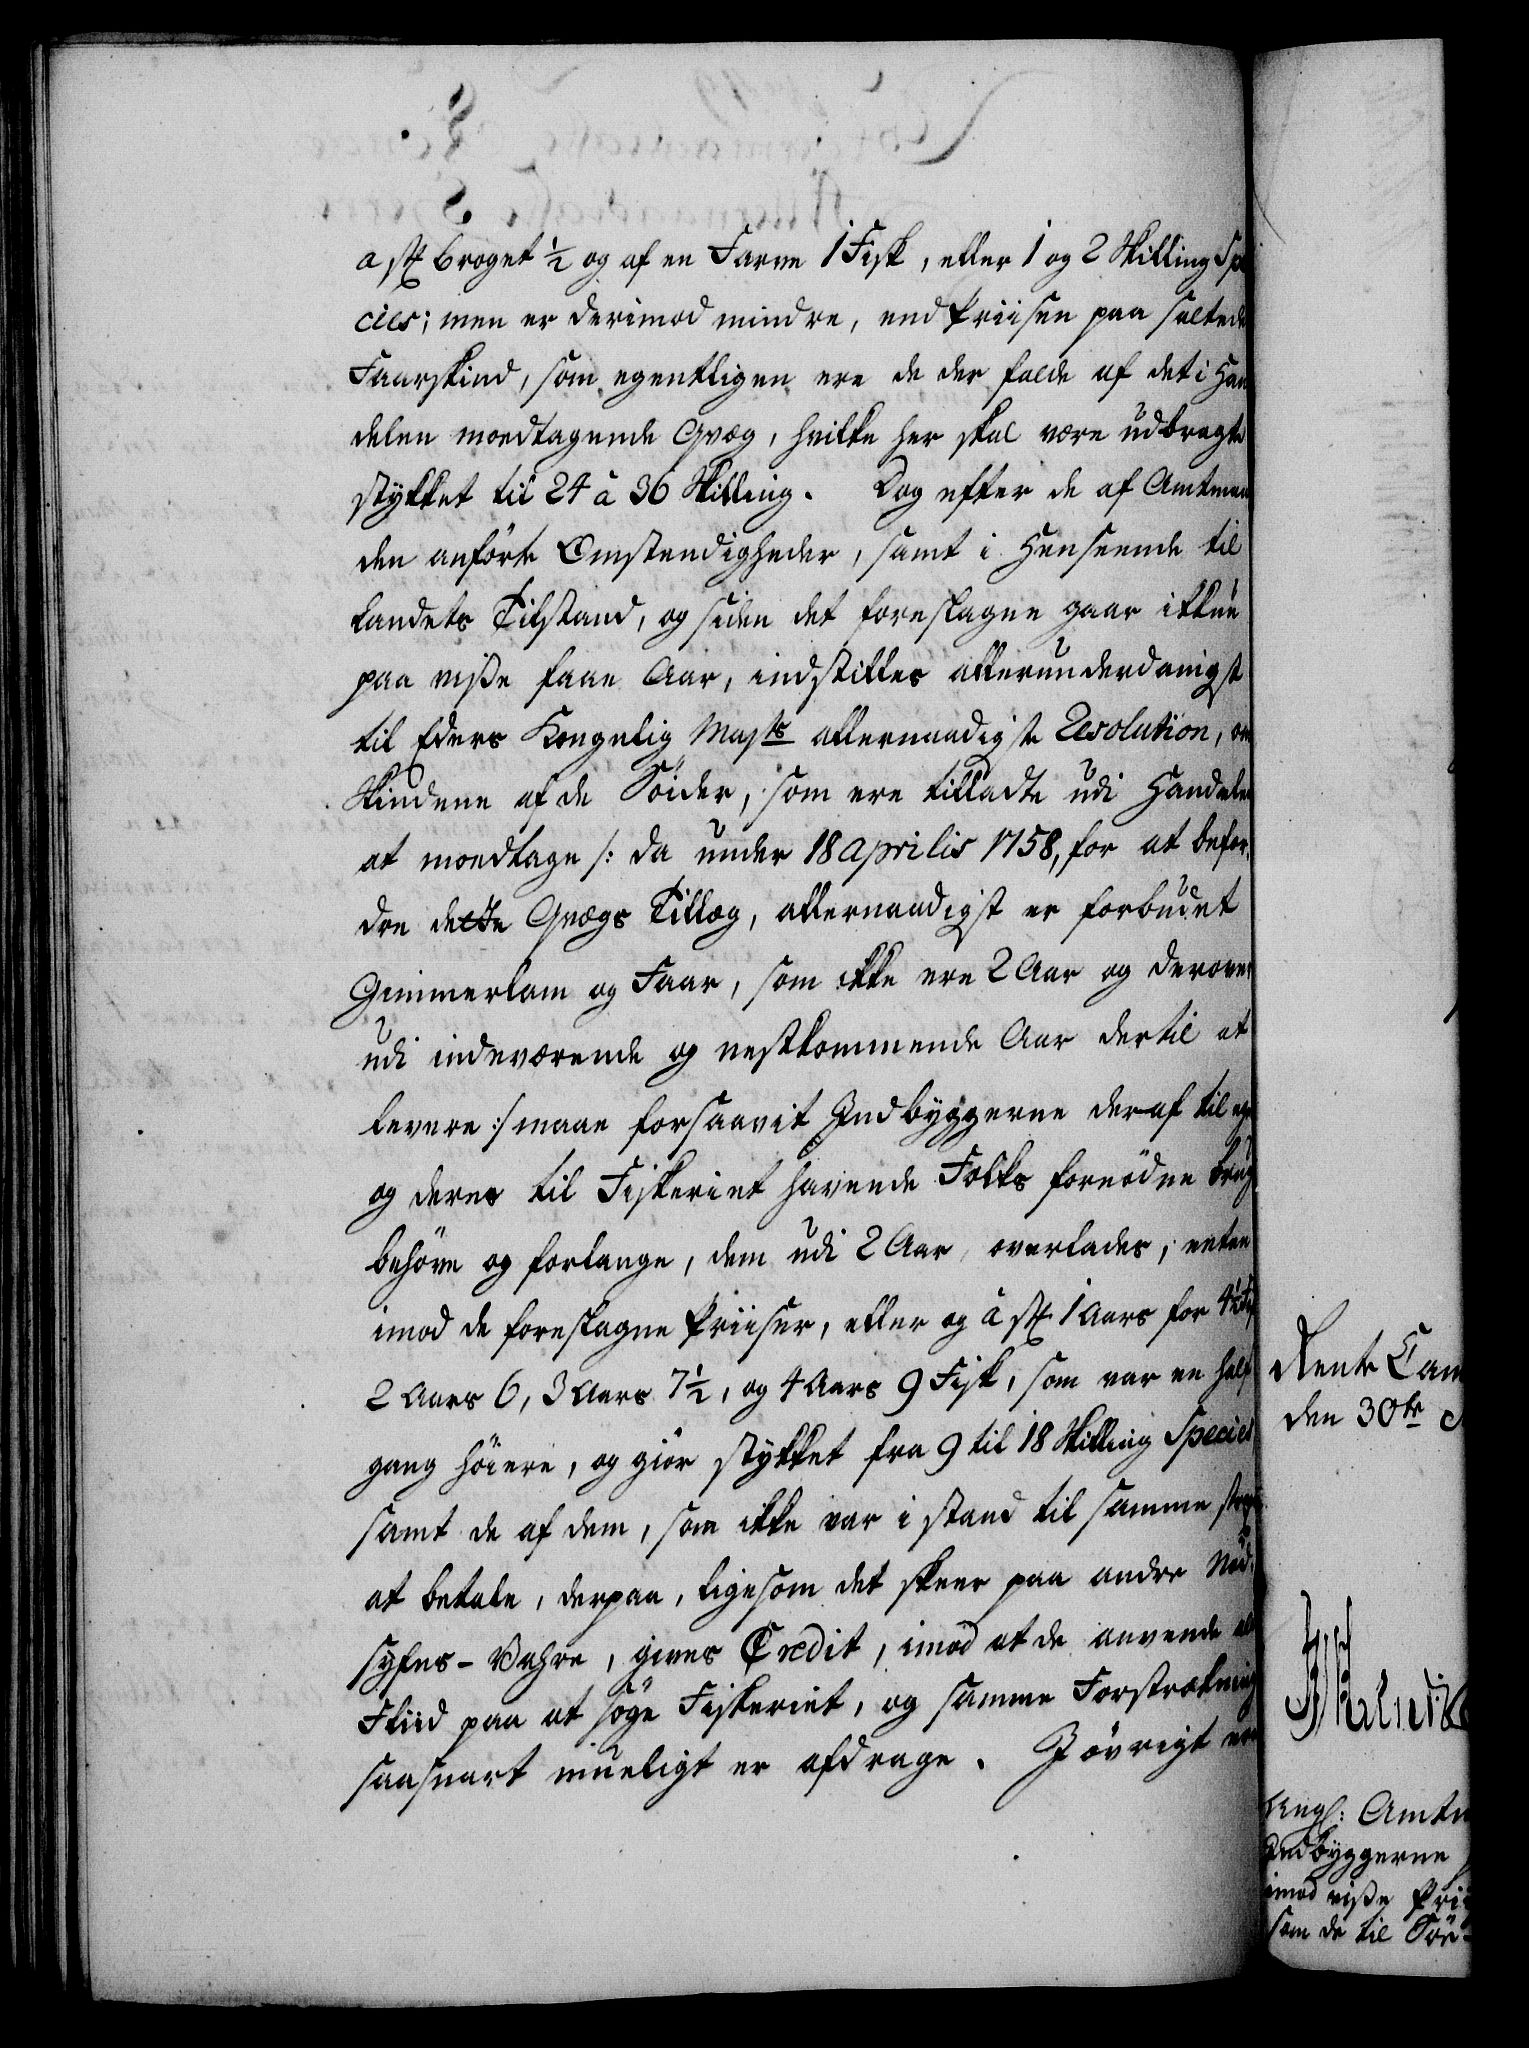 a st broget ½ og af en Farve 1 Fisk, eller 1 og 2 Skilling Spe
cies; men er derimod mindre, end Priisen paa saltede
Faarskind, som egentligen ere de der falde af det i Han
delen modtagende Qvæg, hvilke her skal være udbragte
stykket til 24 à 36 Skilling. Dog efter de af Amtman
den anførte Omstendigheder, samt i Henseende til
Landets Tilstand, og siden det foreslagne gaar ikkun
paa visse faae Aar, indstilles allerunderdanigst
til Eders Kongelig Majts allernaadigste Resolution, om
Skindene af de Söider, som ere tilladte udi Handelen
at modtage /: da under 18 Aprilis 1758, for at befor,
dre dette Qvægs Tillæg, allernaadigst er forbudet
Gimmerlam og Faar, som ikke ere 2 Aar og derover
udi indeværende og nestkommende Aar dertil at
levere :/ maae forsaavit Indbyggerne deraf til eg
og deres til Fiskeriet havende Folks fornödne brug
behöve og forlange, dem udi 2 Aar overlades, enten
imod de foreslagne Priiser, eller og à st 1 Aars for 4½
2 Aars 6, 3 Aars 7½, og 4 Aars 9 Fisk, som var en half
gang höiere, og giör stykket fra 9 til 18 Skilling Species
samt de af dem, som ikke var i stand til samme strax
at betale, derpaa, ligesom det skeer paa andre Nød,
syfns-Vahre, gives Credit, imod at de anvende all
Fliid paa at söge Fiskeriet, og samme Forstrækning
saasnart mueligt er afdrage. I övrigt er
Rente Cam
den 30te
Angl: Amtm
Indbyggerne
imod visse Pri
som de til Söe-